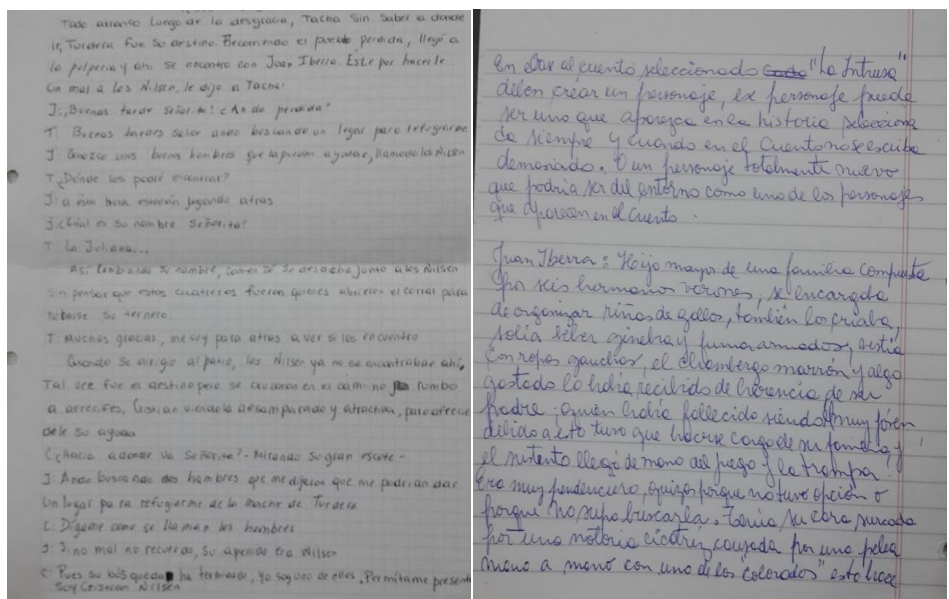 Todo arranco luego de la desgracia, Tacha sin saber a donde
ir, Turdera fue su destino. Recorriendo el pueblo perdida, llegó a
la pulperia y ahi se encontro con Juan Iberra. Este por hacerle
un mal a los Nilsen, le dijo a Tacha:
J: ¡Buenas tarde señorita! ¿Anda perdida?
T: Buenas tardes señor ando buscando un legar para refugiarme
J: Conozco unos buenos hombres que la pueden ayudar, llamado los Nilsen
T: ¿Dónde los podré encontrar?
J: a esta hora estarán jugando atras
J: ¿Cuál es su nombre Señorita?
T: La Juliana...
Asi cambando su nombre, junto a los Nilsen
sin pensar que estos cuatreros fueron quienes abrieron el corral para
robarse su ternero.
T: Muchas gracias, me voy para atras a ver si los encuentro
Cuando se dirigio al patio, los Nilsen ya no se encontraban ahi,
Tal vez fue el destino pero se cruzaron en el camino rumbo
a arrecifes, Cristian viendola desamparada y atractiva, para ofrece
dele su ayuda
C: ¿Hacia a donde va Señorita? - Mirando su gran escote -
J: Ando buscando dos hombres que me dijeron que me podrian dar
un legar para refugiarme de la noche de Turdera
C: Dígame como se llaman los hombres
J: Si no mal no recuerdo, su apellido era Nilsen
C: Pues su búsqueda ha terminado, yo soy uno de ellos. Permitame present
Soy Cristian Nilsen

En base al cuento seleccionado "La Intrusa"
deben crear un personaje, ese personaje puede
ser uno que aparezca en la historia selecciona
da siempre y cuando en el cuento no se escriba
demasiado. O un personaje totalmente nuevo
que podría ser del entorno como uno de los personajes
que aparecen en el cuento.
Juan Iberra: Hijo mayor de una familia compuesta
por seis hermanos varones, se encargaba
de organizar riñas de gallos, también los criaba,
solía beber ginebra y fumar armados, vestía
con ropas gauchas, el chambergo marrón y algo
gastado lo había recibido de herencia de su
padre, quien había fallecido siendo muy jóven
debido a esto tuvo que hacerse cargo de su familia y
el sustento llegó de mano del juego y la trampa.
Era muy pendenciero, quizas porque no tuvo opción o
porque no supo buscarla. Tenía su cara surcada
por una notoria cicatriz, causada por una pelea
mano a mano con uno de los "colorados" esto hace